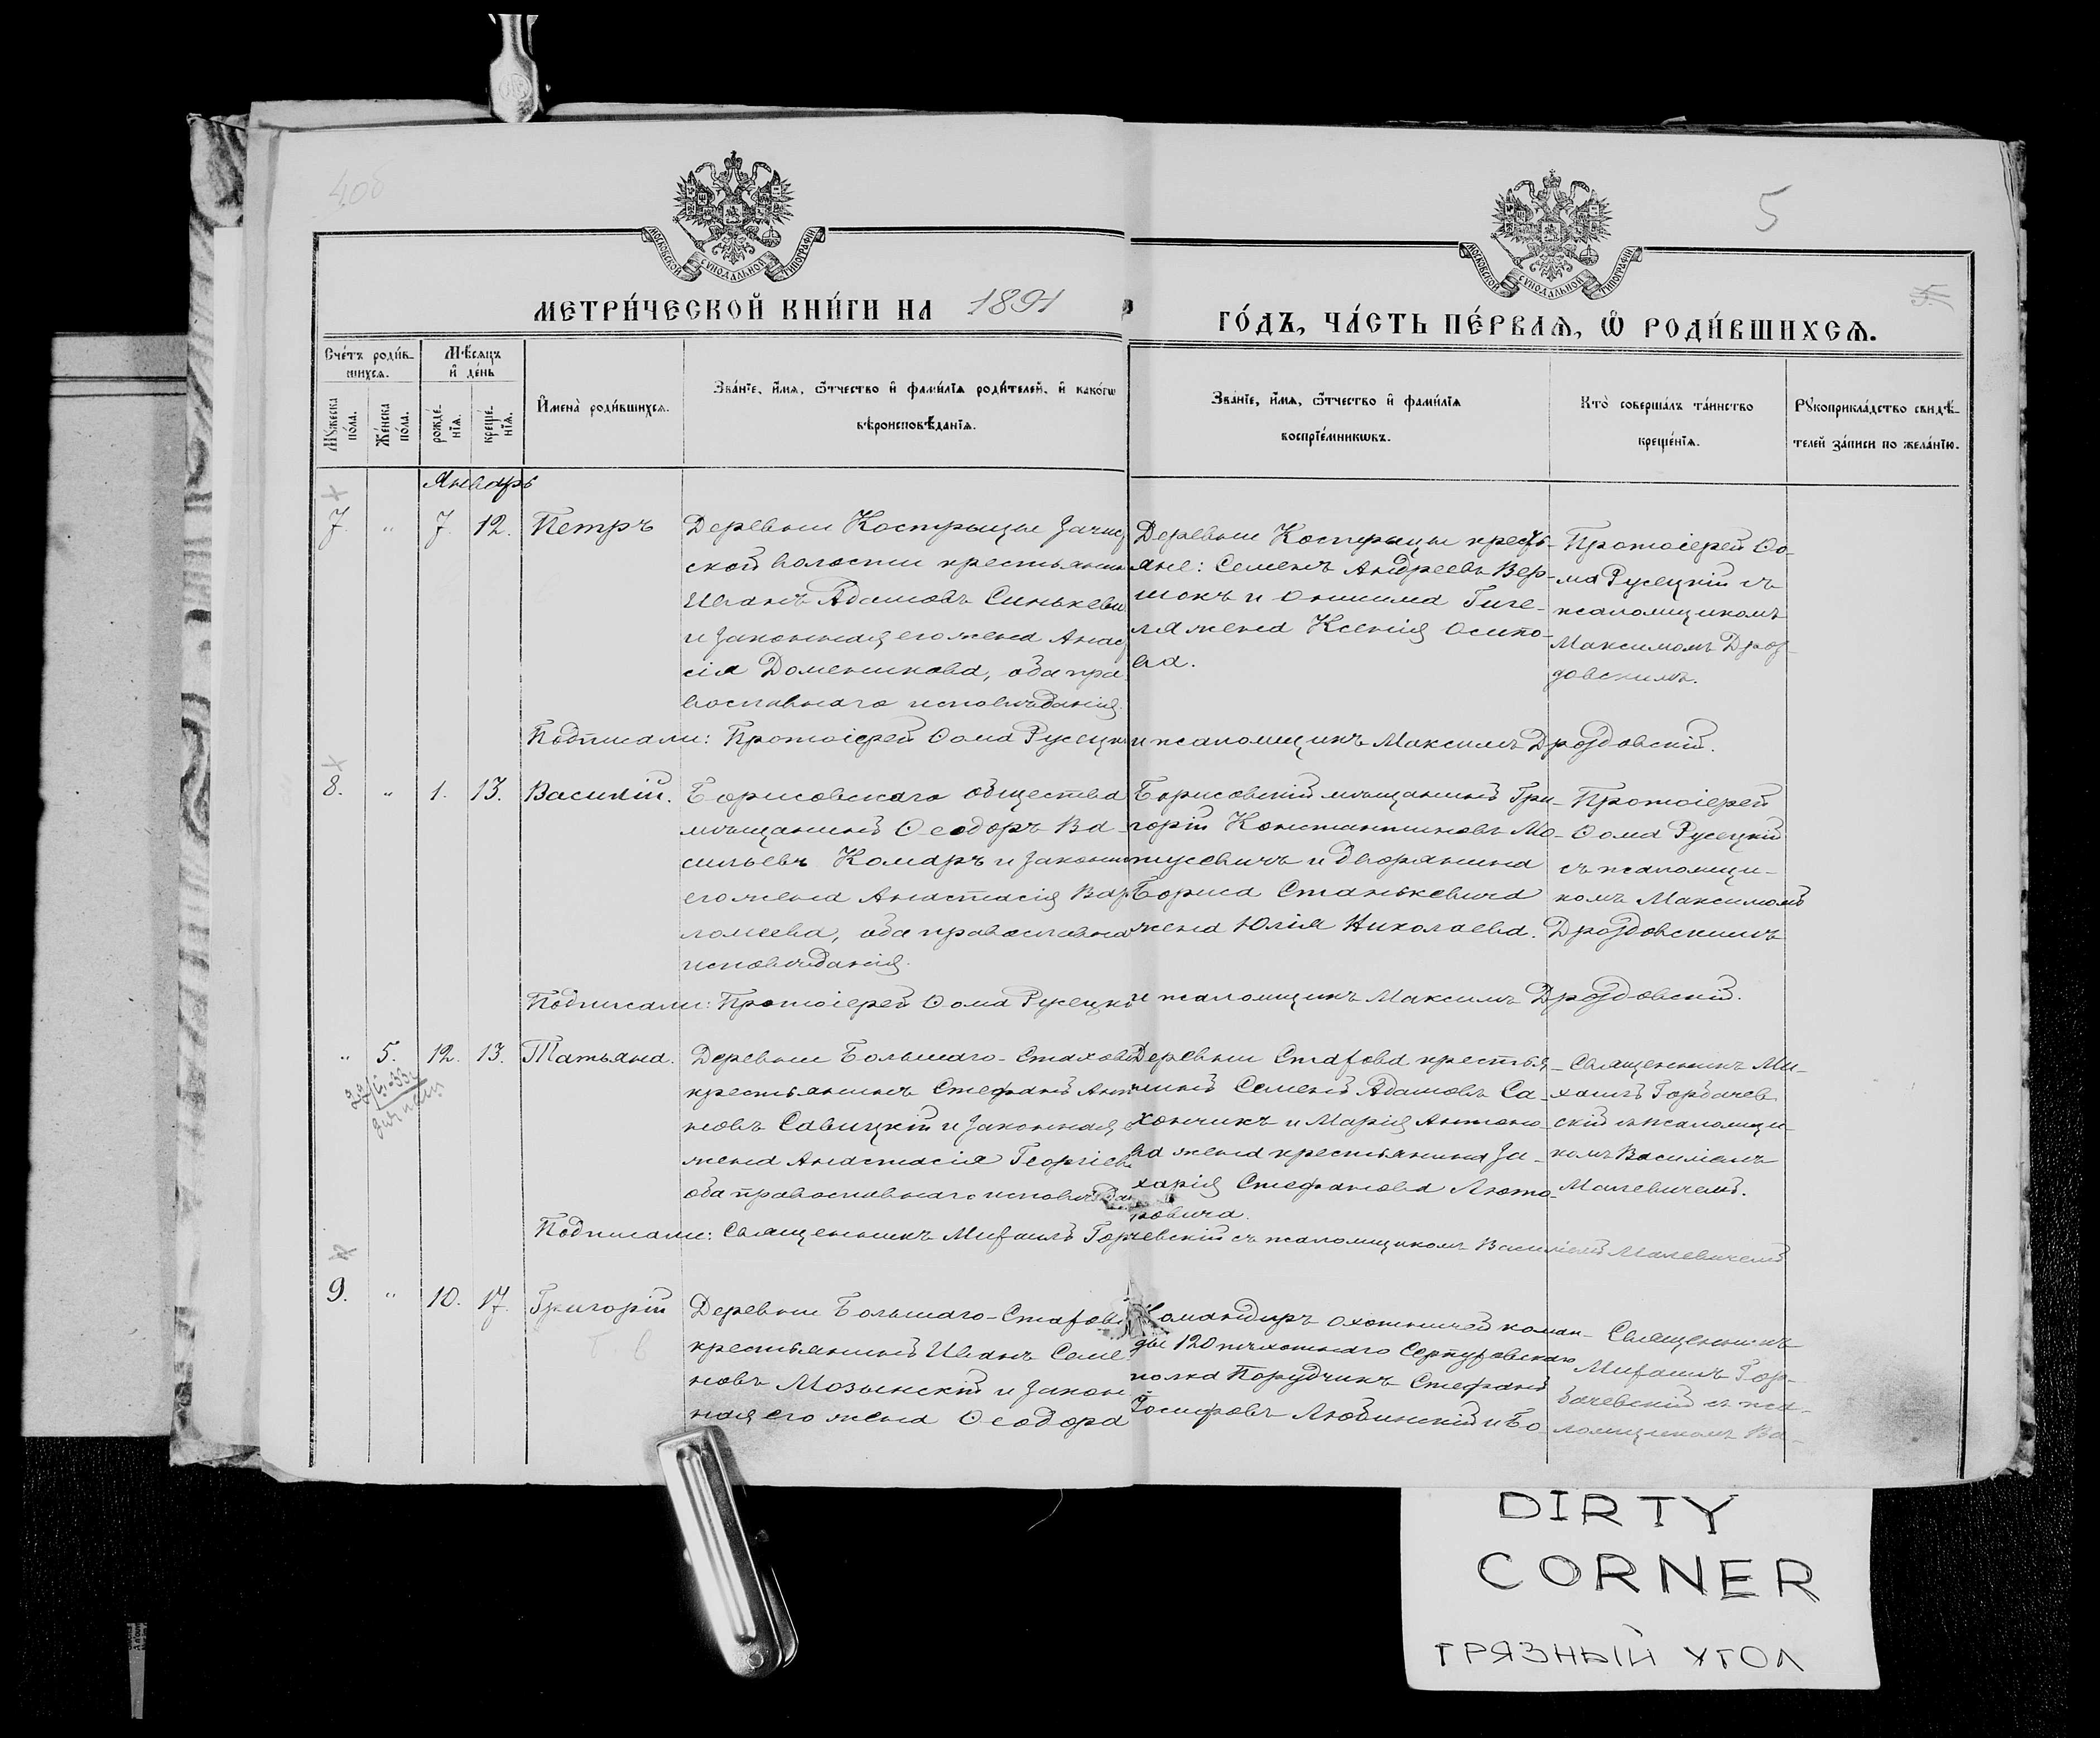 4 об
5
5.
МОСКОВСКОЙ СУНОДАЛЬНОЙ ТИПОГРАФІИ
МОСКОВСКОЙ СУНОДАЛЬНОЙ ТИПОГРАФІИ
МЕТРИ́ЧЕСКОЙ КНИ́ГИ НА 1891
ГО́ДЪ, ЧА́СТЬ ПЕ́РВАѦ, Ѿ РОДИ́ВШИХСѦ.
Сче́тъ роди́в-
шихсѧ.
Мꙋ́жеска по́ла.
Же́нска по́ла.
Мѣ́сяцъ
и҆ де́нь
рожде́-
нїѧ.
креще́-
нїѧ.
И҆мена̀ роди́вшихсѧ.
Зва́нїе, и҆́мѧ, ѻ҆́тчество и҆ фами́лїѧ роди́телей, и҆ како́гѡ
вѣроисповѣ́данїѧ.
Зва́нїе, и҆́мѧ, ѻ҆́тчество и҆ фами́лїѧ
воспрїе́мникѡвъ.
Кто̀ соверша́лъ та́инство
креще́нїѧ.
Рꙋкоприкла́дство свидѣ́-
телей за́писи по жела́нїю.
Январь
7. " 7. 12. Петръ
Деревни Кострицы Зачис
ской волости крестьянин
Иванъ Адамовъ Синькеви
и законная его жена Анас
сія Доменикова, оба пра
вославнаго исповѣданія.
Деревни Кострицы кресть-
яне: Семенъ Андреевъ Вер-
шокъ и Онисима Гиге-
ля жена Ксенія Осипо-
ва.
Протоіерей Ѳо-
ма Русецкій съ
псаломщикомъ
Максимомъ Дроз-
довскимъ.
Подписали: Протоіерей Ѳома Русецк и псаломщикъ Максимъ Дроздовскій.
8. " 1. 13. Василій.
Борисовскаго общества
мѣщанинъ Ѳеодоръ Ва-
сильевъ Комаръ и законн
его жена Анастасія Вар
ломеева, оба православна
исповѣданія.
Борисовскій мѣщанинъ Гри-
горій Константиновъ Мо-
тусевичъ и дворянина
Бориса Станькевича
жена Юлія Николаева.
Протоіерей
Ѳома Русецкій
съ псаломщи-
комъ Максимомъ
Дроздовскимъ
Подписали: Протоіерей Ѳома Русецк и псаломщикъ Максимъ Дроздовскій.
" 5. 12. 13. Татьяна.
Деревни Большаго-Стахова
крестьянинъ Стефанъ Ант
новъ Савицкій и законная е
жена Анастасія Георгіев
оба православнаго исповѣдан
Деревни Стахова крестья-
нинъ Семенъ Адамовъ Са-
хончикъ и Марія Антоно-
ва жена крестьянина За-
харія Стефанова Люто-
ровича.
Священникъ Ми-
хаилъ Горбачев
скій съ псаломщи-
комъ Василіемъ
Малевичемъ.
Подписали: Священникъ Михаилъ Гор чевскій съ псаломщикомъ Василіемъ Малевичемъ
9. " 10. 17. Григорій
Деревни Большаго-Стахова
крестьянинъ Иванъ Семе
новъ Мозынскій и закон
ная его жена Ѳеодора
Командиръ охотничей коман-
ды 120 пѣхотнаго Серпуховскаго
полка Поручикъ Стефанъ
Іосифовъ Любинскій и Бо-
Священникъ
Михаилъ Гор-
бачевскій съ пса-
ломщикомъ Ва-
DIRTY
CORNER
ГРЯЗНЫЙ УГОЛ